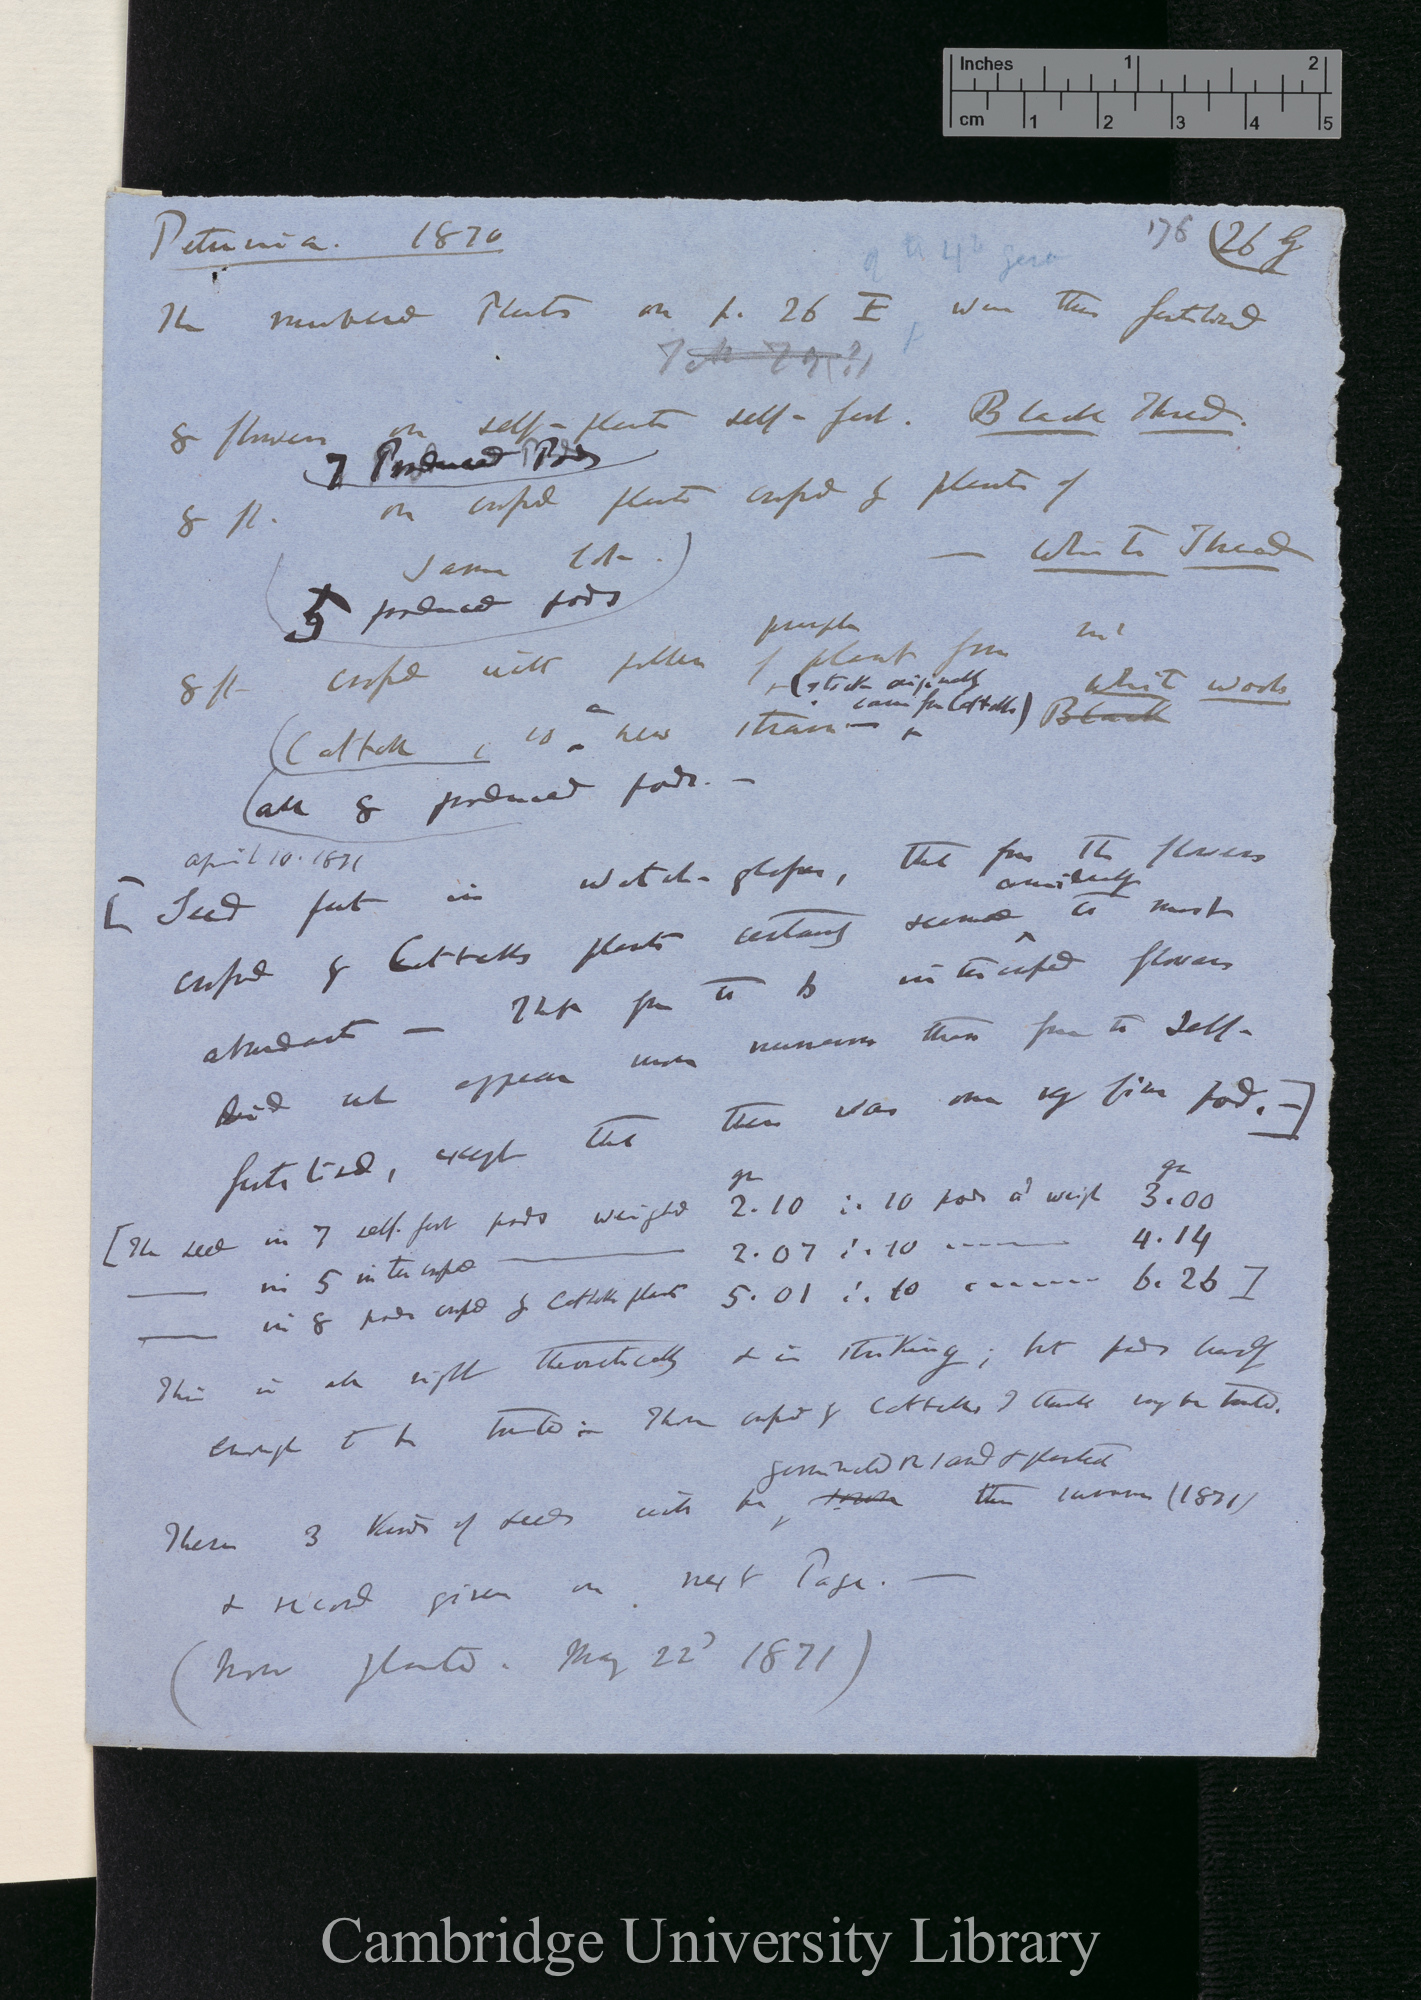 Inches 1 2
cm 1 2 3 4 5
Petunia. 1870
176 (26 G
of 4th Gen
The numbered Plants on p. 26 E, were thus fertilised
8 flowers on self-plants self-fert. Black Thread.
7 Produced Pods
8 fl. on crossed plants crossed by plants of
same lot.) — White Thread
5 produced pods
purple
8 fl crossed with pollen of plant from
(stock originally White wools
came from Cattells) Black
(Cattell, i.e. to a new strain —
(all 8 produced pods. —
April 10. 1871
[Seed put in watch-glasses, that from the flowers
evidently
crossed by Cattells plants certainly seemed to most
abundant — That from the intercrossed flowers
did not appear more numerous than from the Self-
fertilised, except that there was one very fine pod. —]
gr gr
[The seed in 7 self-fert pods weighed 2.10 ∴ 10 pods wd weigh 3.00
—— in 5 intercrossed —— 2.07 ∴ 10 ------ 4.14
—— in 8 pods crossed by Cattells plants 5.01 ∴ 10 ------- 6.26 ]
This is all right theoretically & is striking; but pods hardly
enough to be trusted :– Those crossed by Cattells I think may be trusted.
germinated on sand & planted
These 3 kinds of seeds will be, sown this summer (1871)
& record given on next Page. —
(Now planted. May 22d 1871)
Cambridge University Library